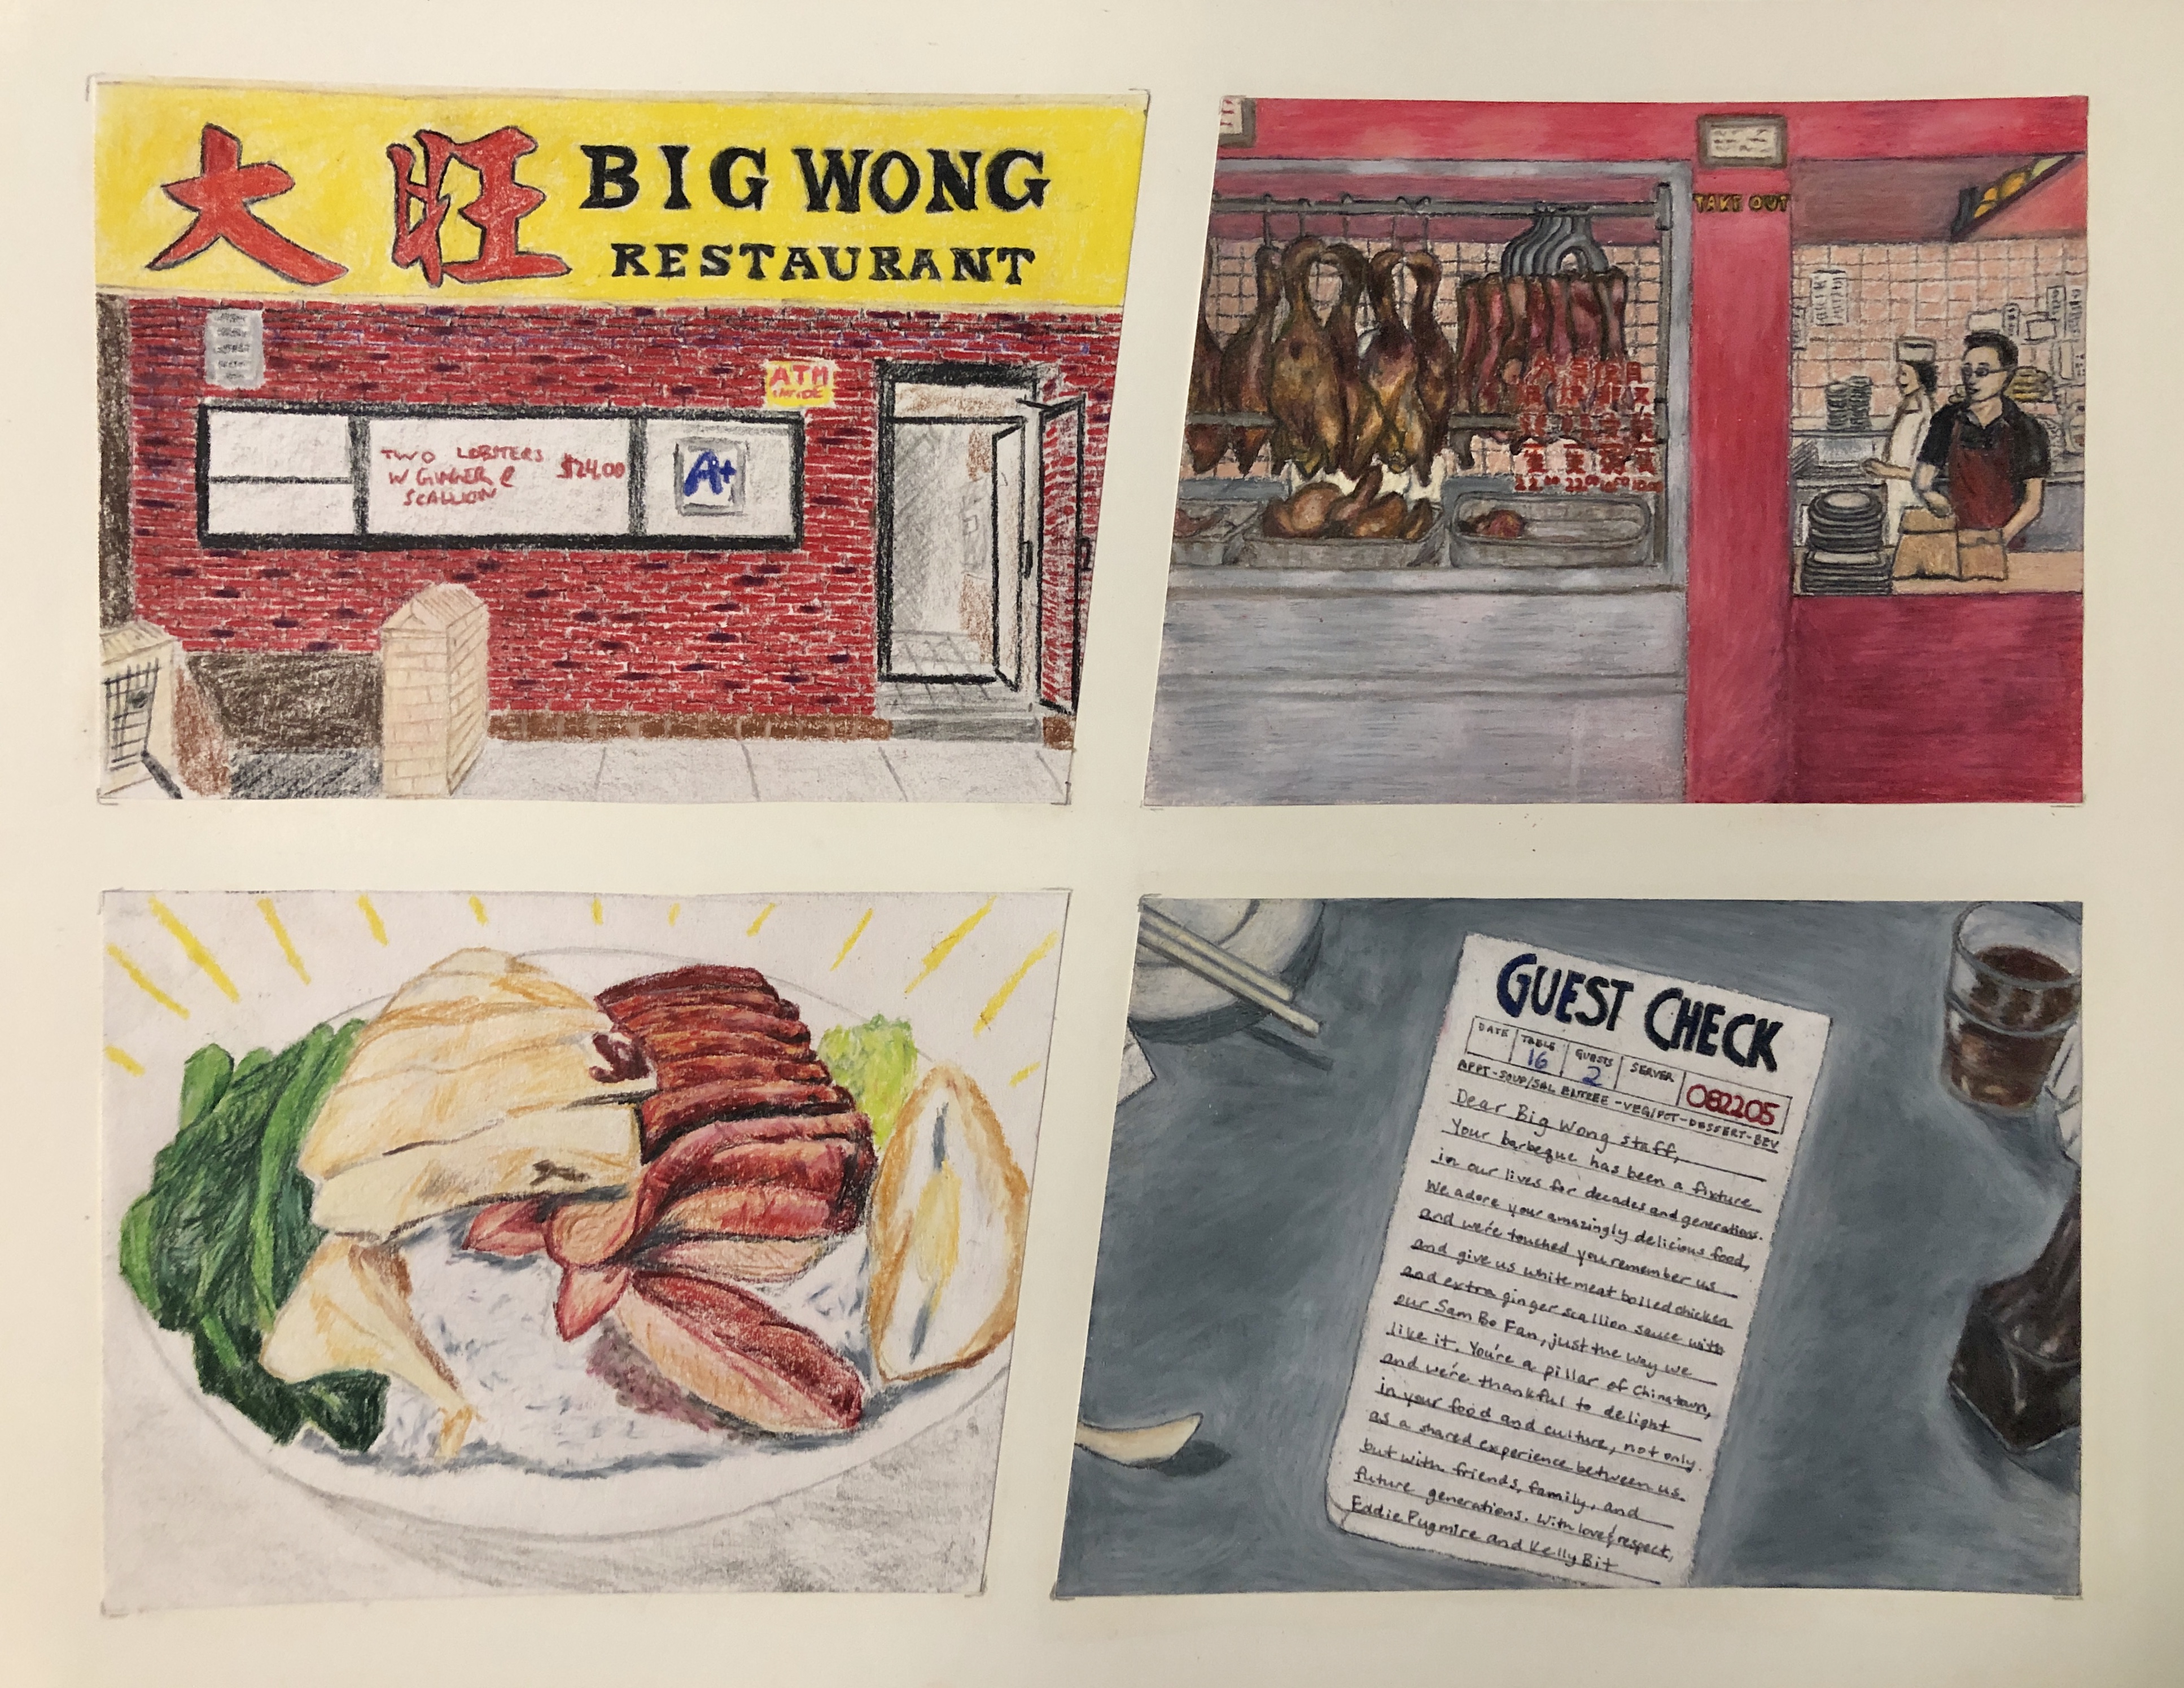 大旺 BIG WONG
RESTAURANT
ATM
INSIDE
TWO LOBSTERS
W GINGER &
SCALLION
$24.00
A+
TAKE OUT
22.00 22.00
GUEST CHECK
DATE TABLE GUESTS SERVER
16 2 082205
APPT-SOUP/SAL ENTREE-VEG/POT-DESSERT-BEV
Dear Big Wong staff,
Your barbeque has been a fixture
in our lives for decades and generations.
We adore your amazingly delicious food,
and we're touched you remember us
and give us white meat boiled chicken
and extra ginger scallion sauce with
our Sam Bo Fan, just the way we
like it. You're a pillar of Chinatown,
and we're thankful to delight
in your food and culture, not only
as a shared experience between us
but with friends, family, and
future generations. With love & respect,
Eddie Pugmire and Kelly Bit